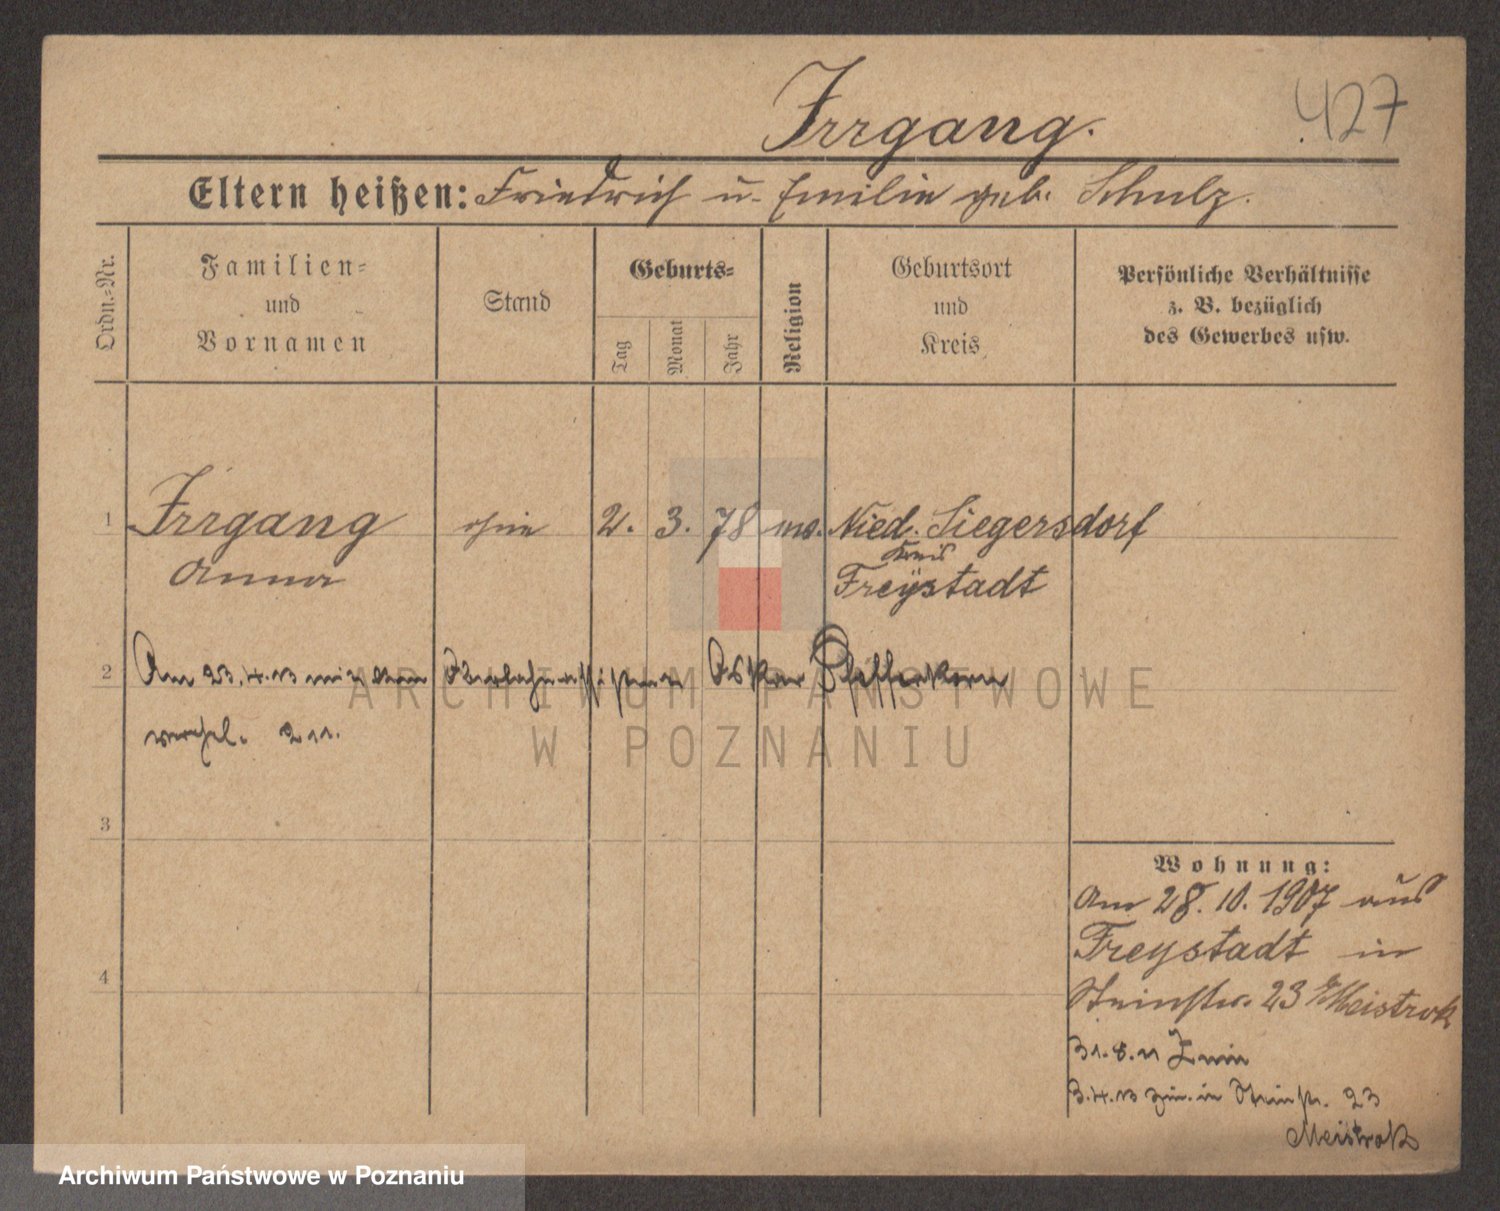 Irrgang.
427
Eltern heißen: Friedrich u. Emilie geb. Schulz.
Ordn.-Nr.
Familien-
und
Vornamen
Stand
Geburts-
Tag
Monat
Jahr
Religion
Geburtsort
und
Kreis
Persönliche Verhältnisse
z. B. bezüglich
des Gewerbes usw.
1 Irrgang ohne 2. 3. 78 Nied. Siegersdorf
Kreis
Anna Freystadt
2 Am 23.4.13 mit dem Oskar Pfefferkorn
verehel.
ARCHIWUM PAŃSTWOWE
W POZNANIU
3
4
Wohnung:
Am 28. 10. 1907 aus
Freystadt in
Steinstr. 23 b/Meistrok
31.8.11
3.4.13 in Steinstr. 23
Meistrok
Archiwum Państwowe w Poznaniu